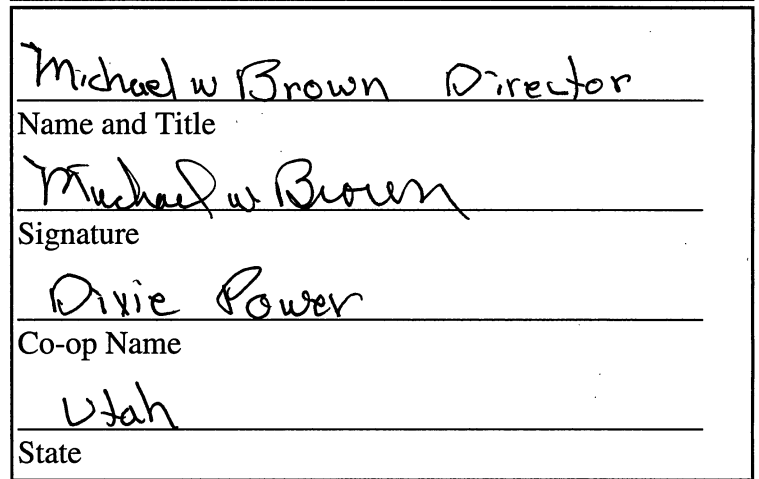 Michael w Brown Director
Name and Title
Michael w Brown
Signature
Dixie Power
Co-op Name
Utah
State